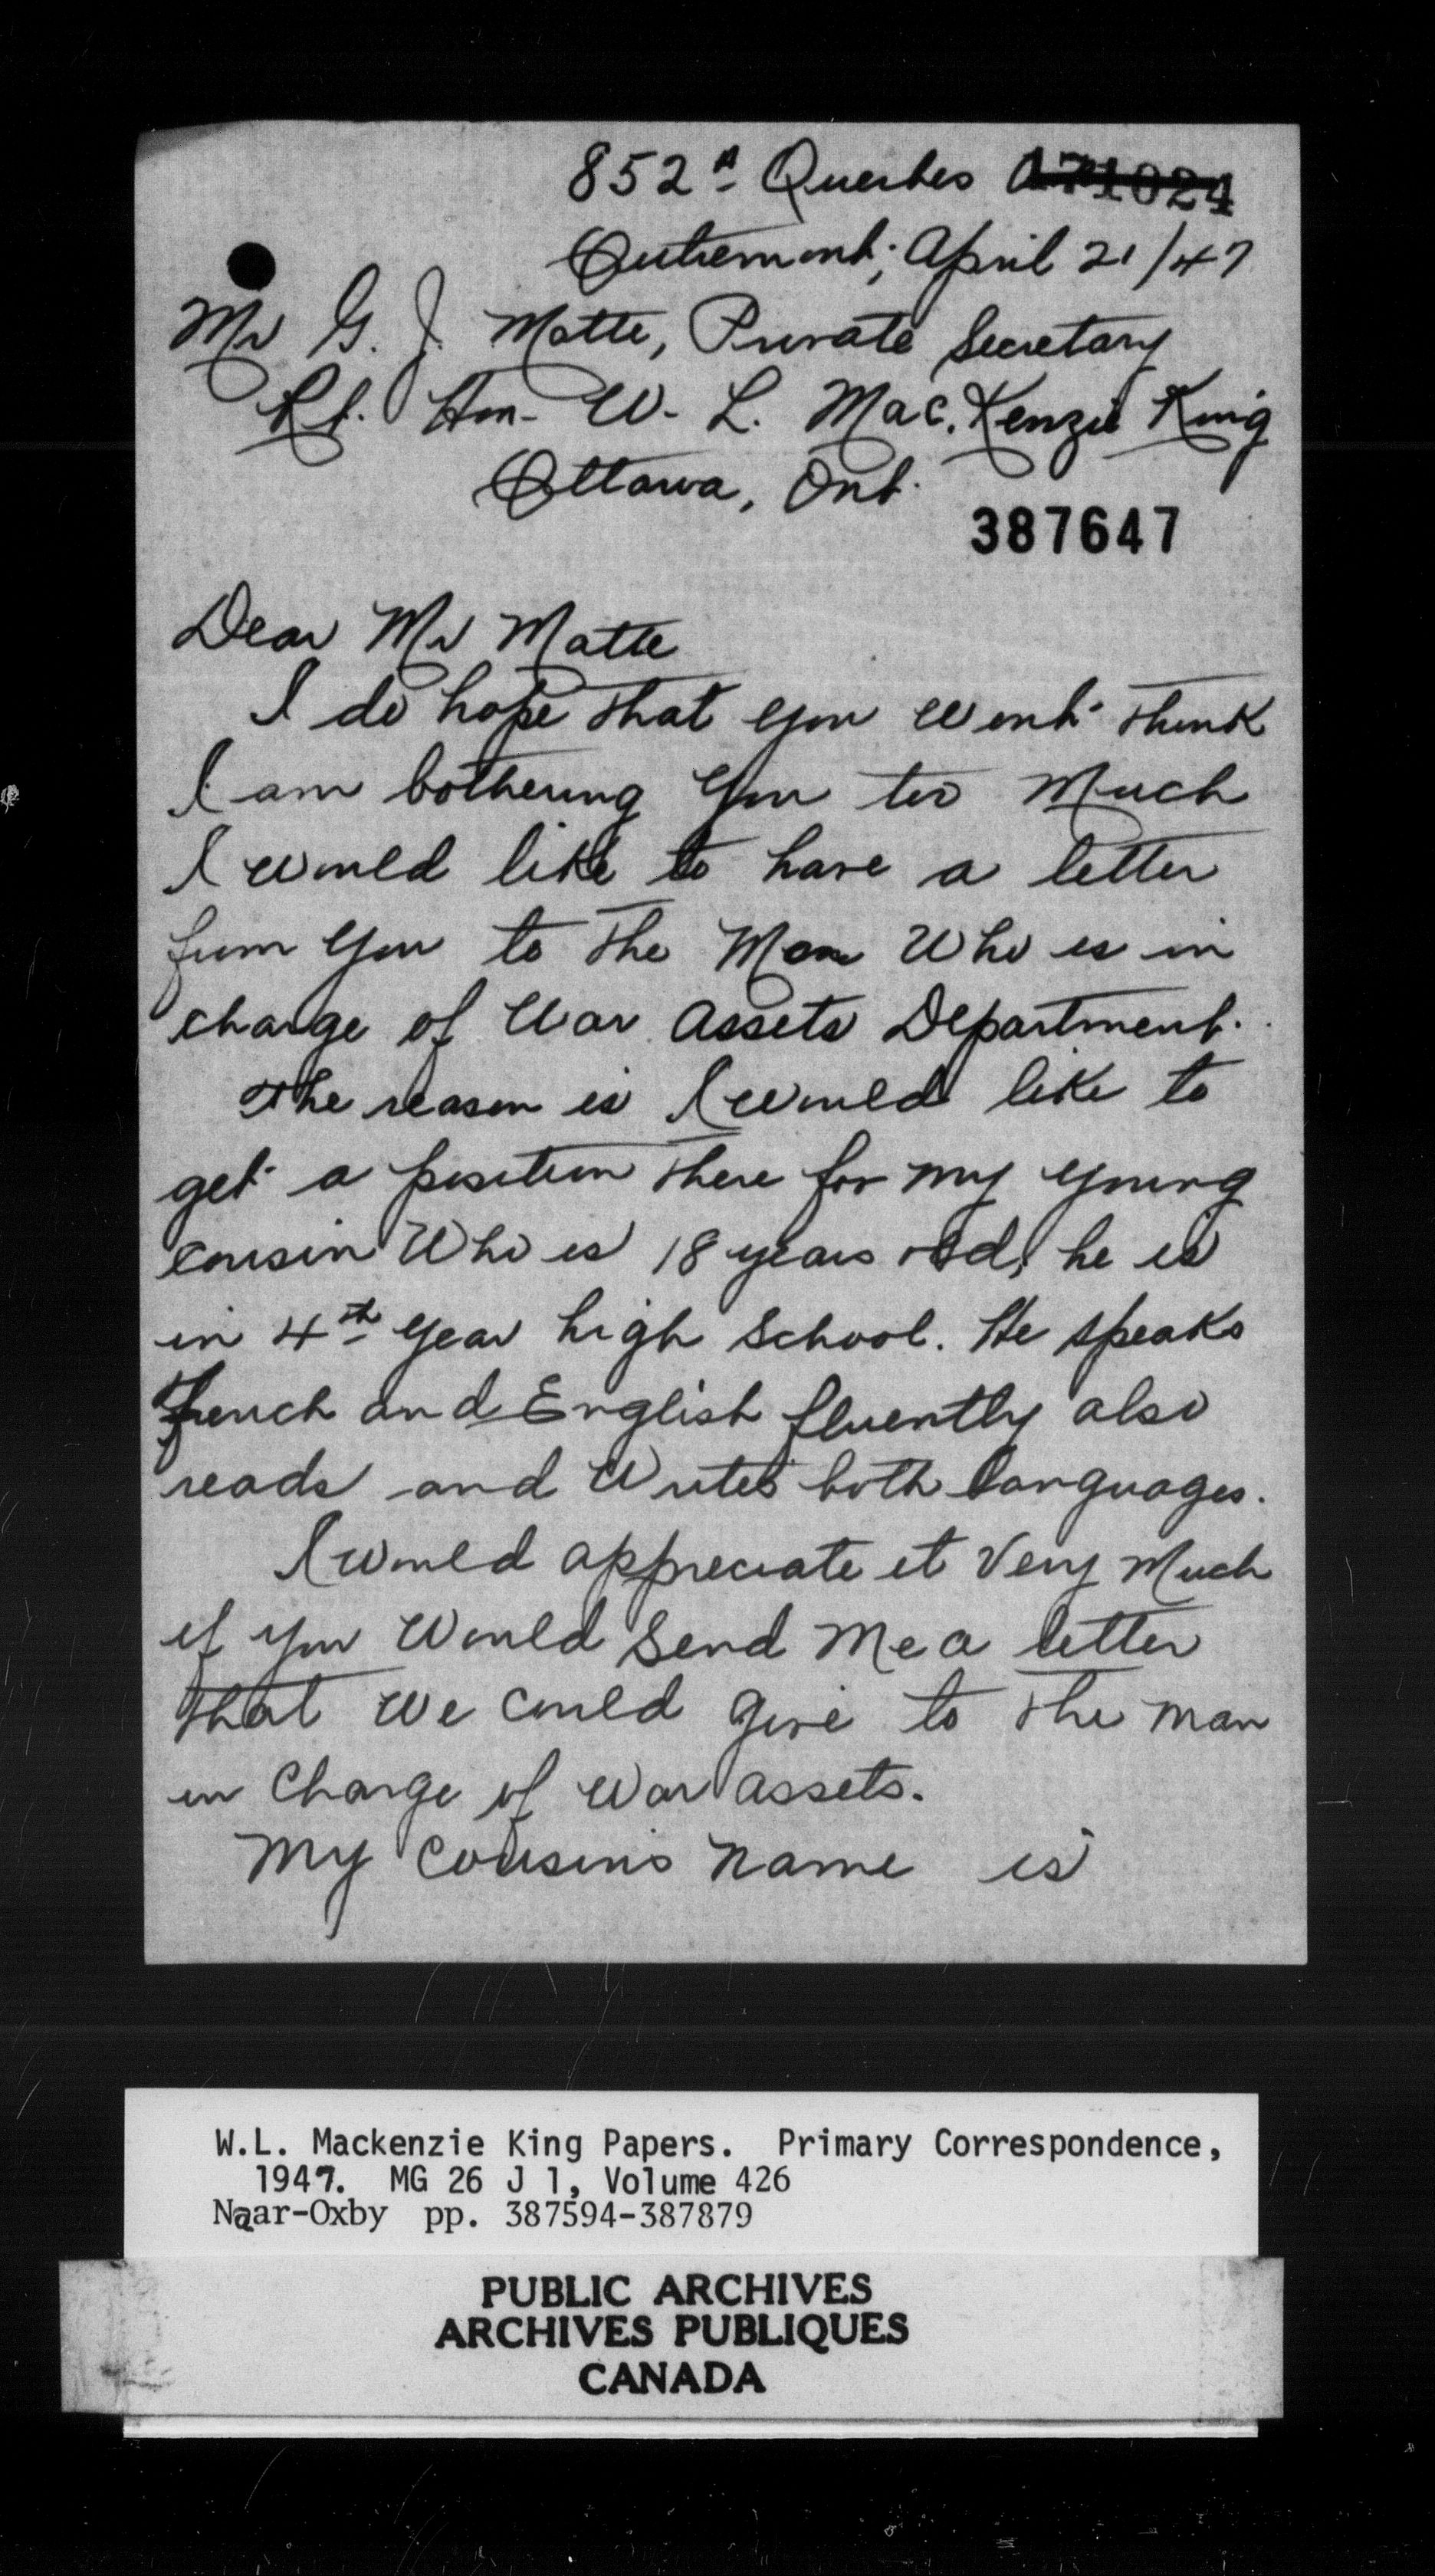 852A Querbes A
171024
Outremont; April 21/47
Mr G. J. Matte, Private Secretary
Rt. Hon. W. L. Mac.Kenzie King
Ottawa, Ont.
387647
Dear Mr Matte
I do hope that you wont think
I am bothering you too much
I would like to have a letter
from you to the Man Who is in
charge of War Assets Department.
The reason is I would like to
get a position there for my young
cousin Who is 18 years old, he is
in 4th year high School. He speaks
french and English fluently also
reads and Writes both languages.
I would appreciate it Very Much
if you Would Send Me a letter
that We could give to the man
in Charge of War assets.
My Cousin's name is
W.L. Mackenzie King Papers. Primary Correspondence,
1947. MG 26 J 1, Volume 426
Naar-Oxby pp. 387594-387879
PUBLIC ARCHIVES
ARCHIVES PUBLIQUES
CANADA